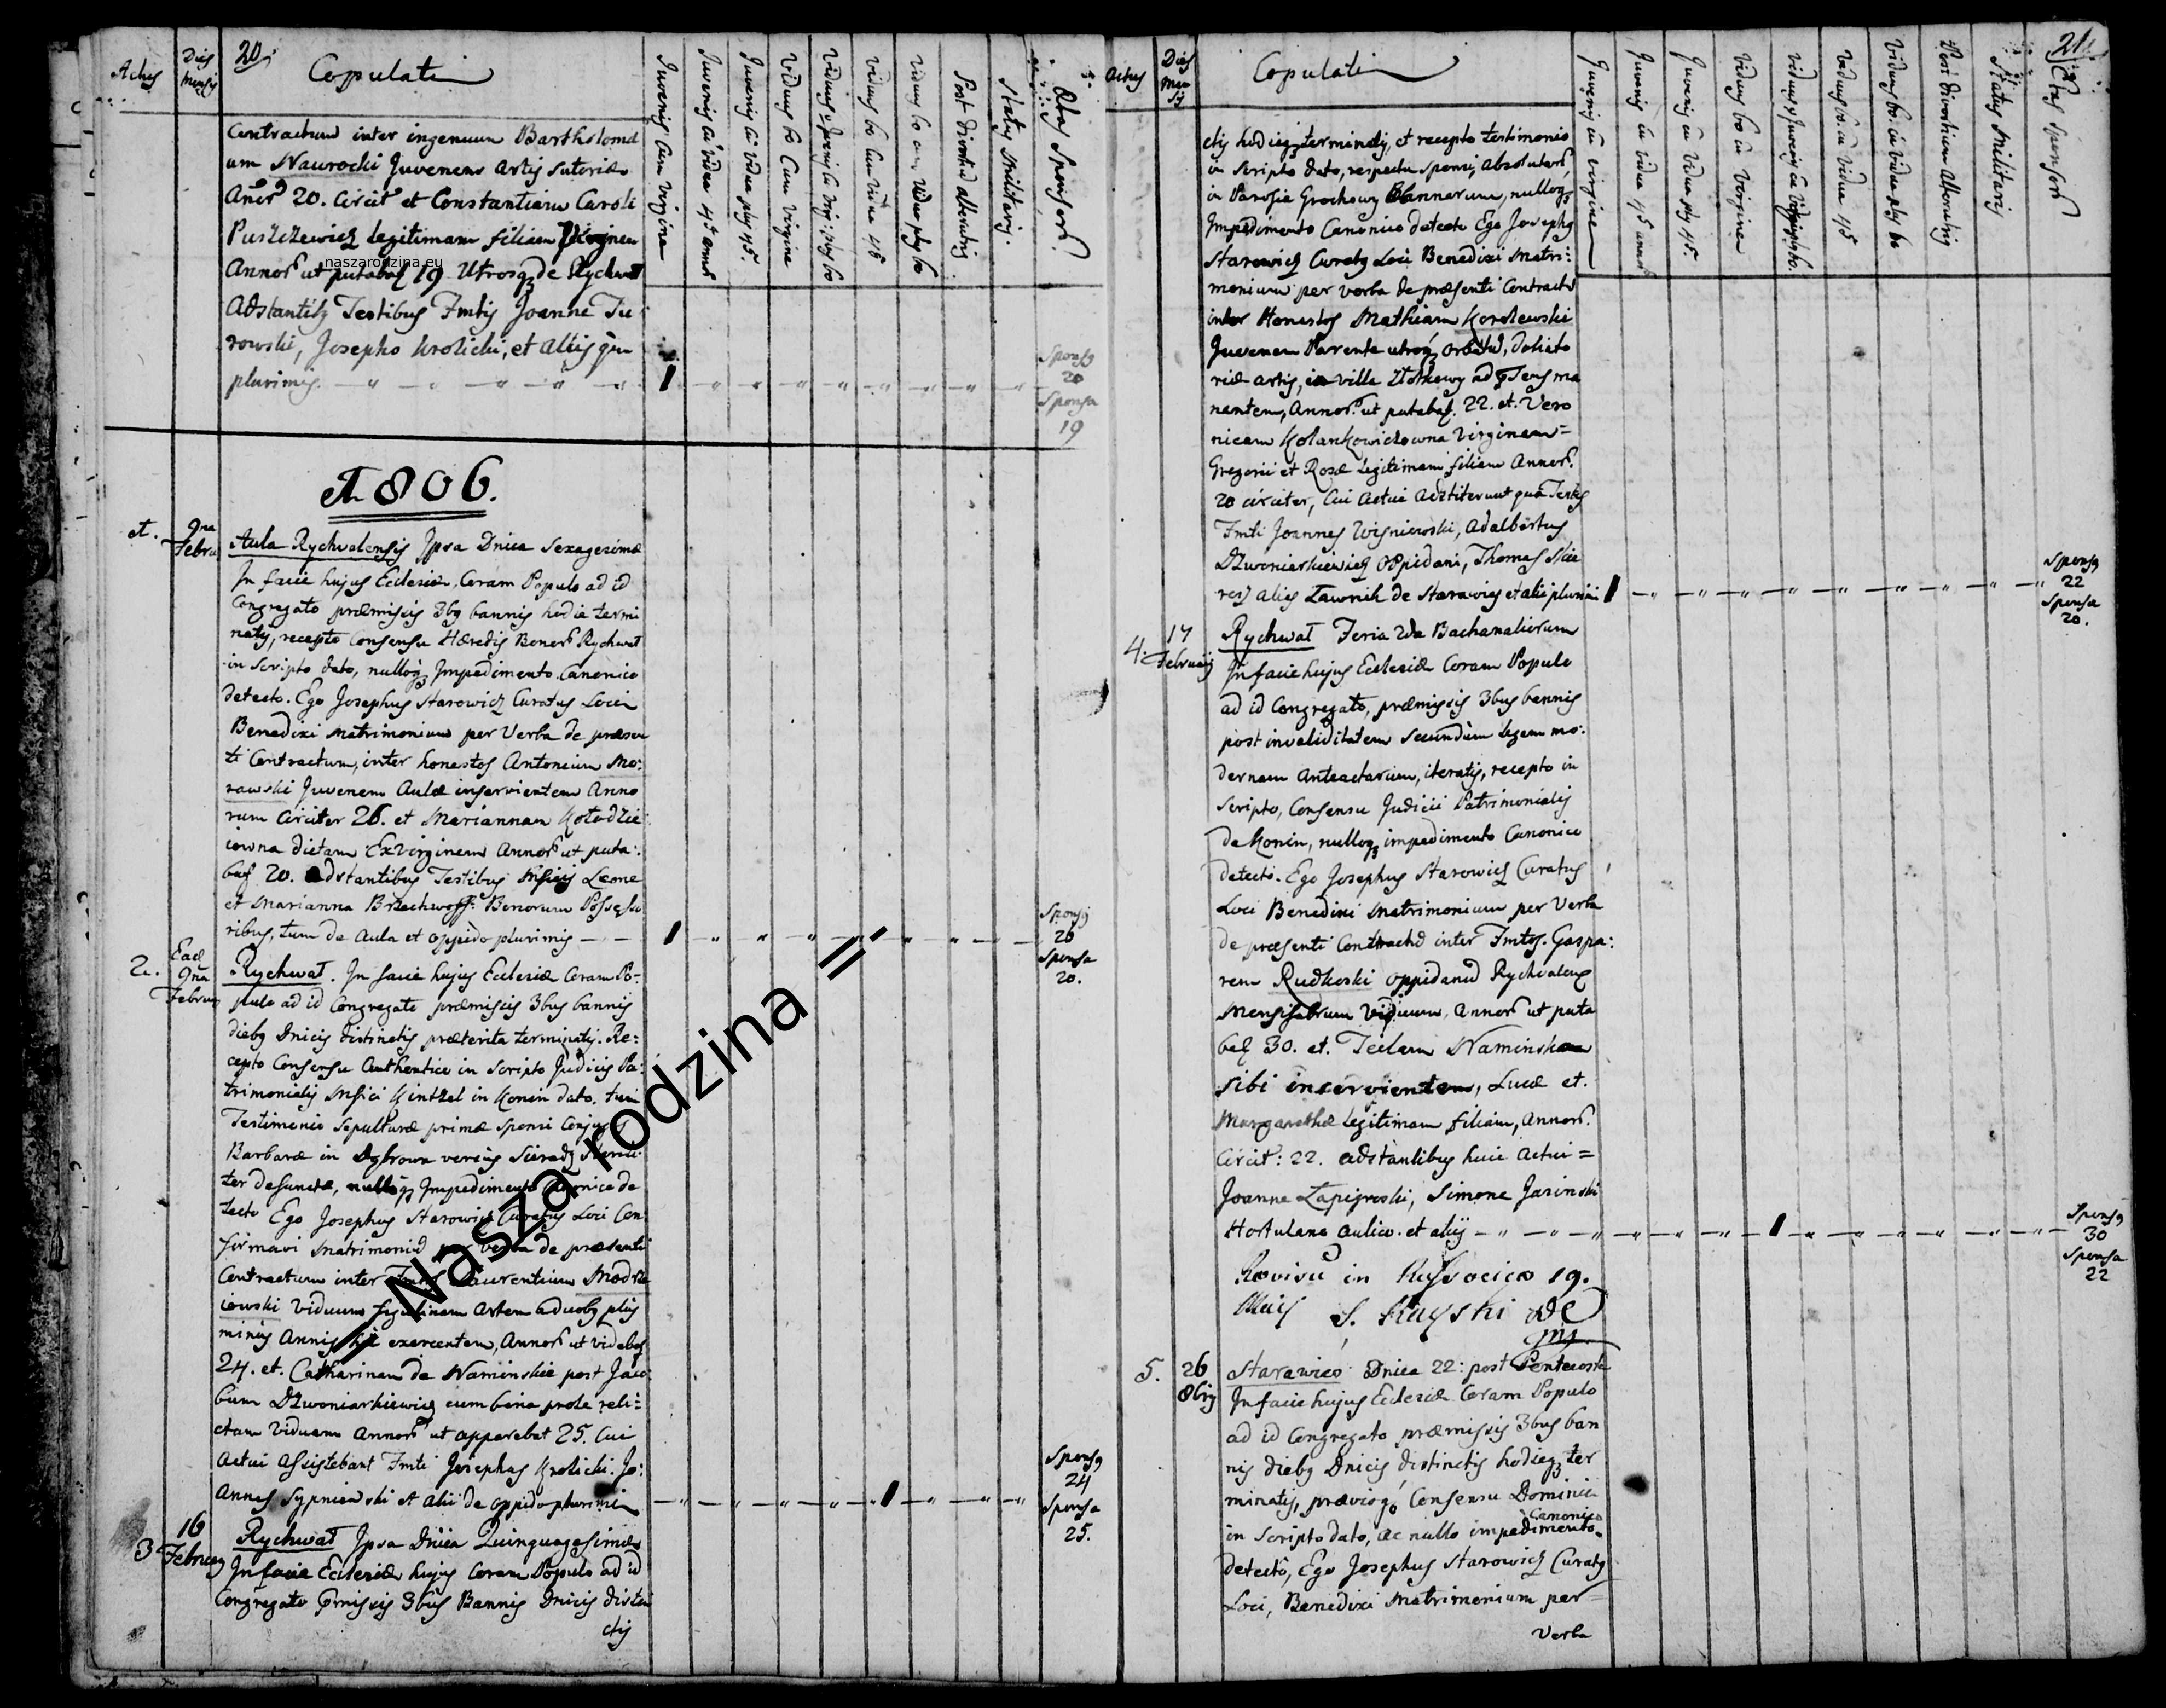 Actus
Dies Mensis
20.
Copulati
Juvenis cum Virgine
Juvenis cu vidua 45 annor
Juvenis cu vidua plus 45.
Viduus 60 cum Virgine
Viduus 60 cum vidua 45
Post divortiu alterutrius
Status Militaris.
Ætas Sponsor
Contractum inter ingenuum Bartholomæ
um Nawrocki Juvenem artis sutoriæ
Anor 20. circit et Constantiam Caroli
Puszczewicz legitimam filiam Virginem
Annor ut putabat 19 utrosqz de Rychwał
Adstantibz Testibus Fmtis Joanne Tu
rowski, Josepho Krolicki, et aliis qm
plurimis.
1
Sponsq
20
Sponsa
19
naszarodzina.eu
1806.
1.
9na
Febru
Aula Rychvalensis Ipsa Dnica Sexagesimæ
In facie hujus Ecclesiæ. Coram Populo ad id
Congregato præmissis 3bq bannis hodie termi
natis, recepto Consensu Hæredis Bonor Rychwał
in scripto dato, nulloqz Impedimento Canonico
detecto. Ego Josephus Starowicz Curatus Loci
Benedixi Matrimonium per Verba de præsen
ti Contractum, inter honestos Antonium Mo:
rawski Juvenem Aulæ inservientem Anno
rum circiter 26. et Mariannam Kołodzie
iowna dictam ExVirginem Annor ut puta:
bat 20. adstantibus Testibus Mficis Leone
et Marianna Brzechwoff: Bonorum Possesso
ribus, tum de Aula et oppido plurimis
1
Sponsq
26
Sponsa
20.
2.
Ead
9na
Februa
Rychwał. In facie hujus Ecclesiæ Coram Po-
pulo ad id Congregato præmissis 3bus bannis
diebq Dnicis distinctis præterita terminatis. Re=
cepto Consensu Authentico in scripto Judicis Pa:
trimonialis Mfici Kintzel in Konin dato. tum
Testimonio Sepulturæ primæ Sponsi Conjugis
Barbaræ in Dąbrowa versus Sieradz
ter defunctæ, nulloqz Impedimento Canonico de
tecto Ego Josephus Starowicz Curatus Loci Con
firmavi Matrimoniu per verba de præsenti
Contractum inter Fmtos Laurentium Modrze
iewski viduum figulinam Artem a duobq plus
minus Annis hic exercentem, Annor ut videbat
24. et. Catharinam de Naminskie post Jaco
bum Dzwoniarkiewicz cum bina prole reli=
ctam Viduam Annor ut apparebat 25. Cui
Actui assistebant Fmti Josephus Krolicki. Jo:
annes Sypniewski et alii de oppido plurimi
1
Sponsq
24
Sponsa
25.
3
16
Februaq
Rychwał Ipsa Dnica Quinquagesimæ
In facie Ecclesiæ hujus Coram Populo ad id
Congregato pmissis 3bus Bannis Dnicis distin
ctis
= Nasza rodzina =
Actus
Dies Men sis
Copulati
Juvenis cu virgine
Juvenis cu vidua 45 annor
Juvenis cu Vidua plus 45.
Viduus 60 cu Virgine
Viduus 60. cu Vidua 45
Viduus 60. cu vidua plus 60
Post divortium Alterutrius
Status Militaris
21.
Ætas Sponsor
ctis hodieqz terminatis, et recepto testimonio
in scripto dato, respectu sponsi, absolutor
in Parofia Grochowy Bannorum, nulloqz
Impedimento Canonico detecto Ego Josephq
Starowicz Curatq Loci Benedixi Matri:
monium per verba de præsenti Contractu
inter Honestos Mathiam Korolewski
Juvenem Parente utroqz orbatu, doliato
riæ artis, in villa Złotkowy ad pns ma
nentem, Annor ut putabat. 22. et. Vero
nicam Kolankowiczowna Virginem=
Gregorii et Rosæ legitimam filiam Annor.
20 circiter, Cui Actui adstiterunt qua Testes
Fmti Joannes Wisniewski, Adalbertus
Dzwoniarkiewicz oppidani, Thomas Skie
resz alias Ławnik de Starawies et alii plurimi
1
Sponsq
22
Sponsa
20.
4.
17
Februarij
Rychwał Feria 2da Bachanaliorum
In facie hujus Ecclesiæ Coram Populo
ad id Congregato, præmissis 3bus bannis
post invaliditatem secundum legem mo:
dernam Anteactarum, iteratis, recepto in
scripto, Consensu Judicii Patrimonialis
de Konin, nulloqz impedimento Canonico
detecto. Ego Josephus Starowicz Curatus
Loci Benedixi Matrimonium per Verba
de præsenti Contractu inter Fmtos. Gaspa:
rem Rudkoski oppidanu Rychvalens
Mensifabrum Viduum, Annor ut puta
bat 30. et. Teclam Naminskam
sibi inservientem, Lucæ et.
Margarethæ legitimam filiam, Annor.
Circit: 22. adstantibus huic Actui=
Joanne Łapigroski, Simone Jasinski
Hortulano aulico. et aliis
1
Sponsq
30
Sponsa
22
Revisu in Russocice 19.
Maij
5.
26
8bris
Starawies Dnica 22: post Pentecoste
In facie hujus Ecclesiæ Coram Populo
ad id Congregato, præmissis 3bus ban
nis diebq Dnicis distinctis hodieqz ter
minatis, prævioqz Consensu Dominii
Canonico
in scripto dato, ac nullo impedimento
detecto, Ego Josephus Starowicz Curatq
Loci, Benedixi Matrimonium per=
Verba